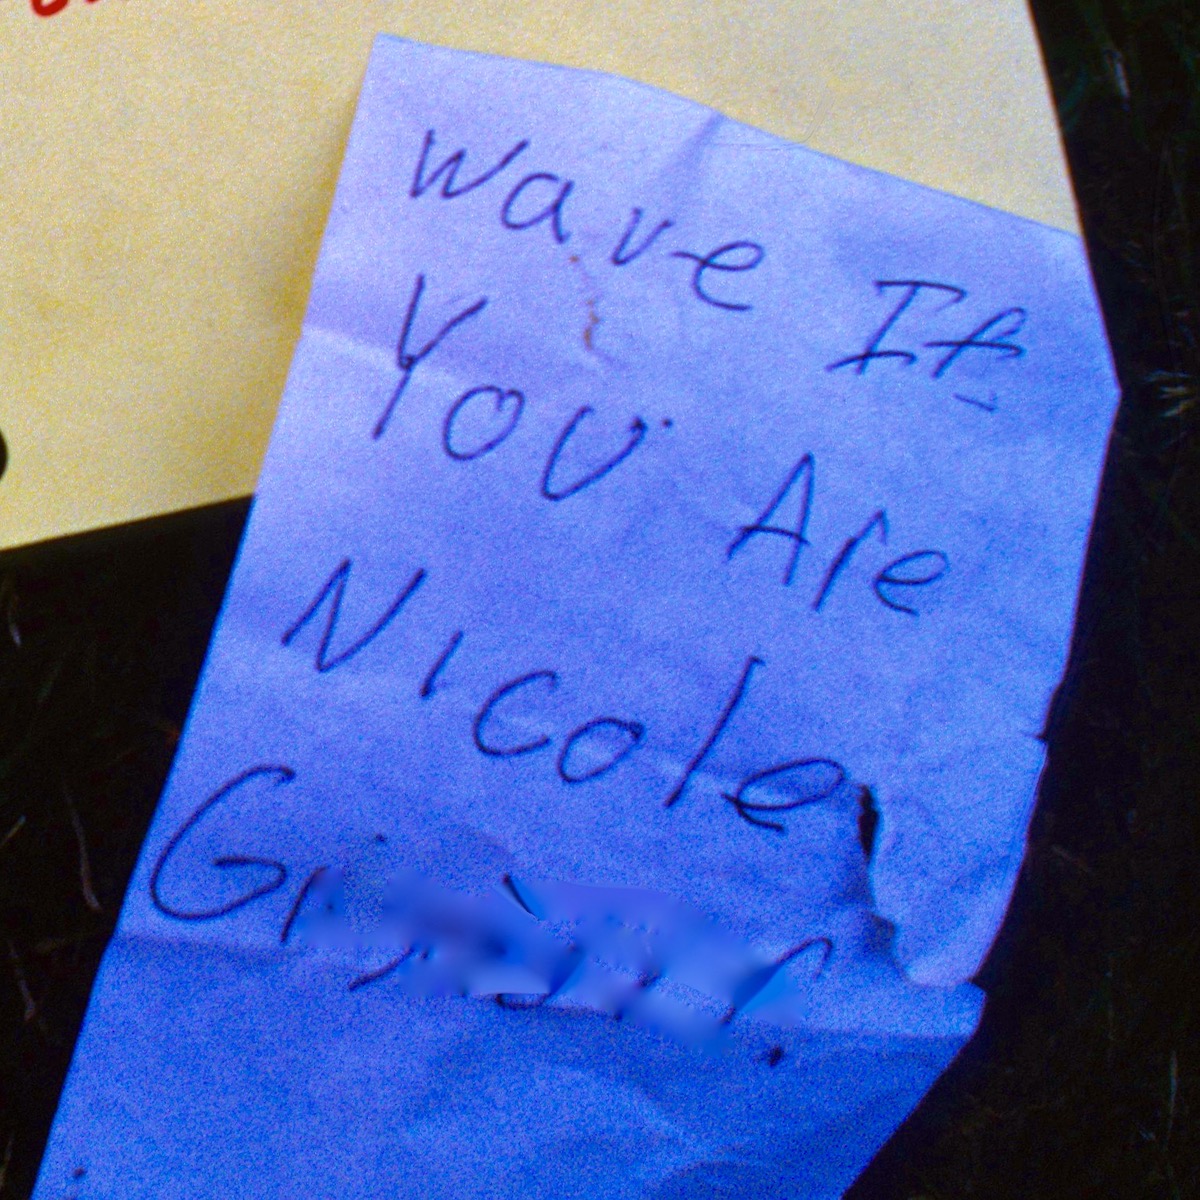 Wave If
You Are
Nicole